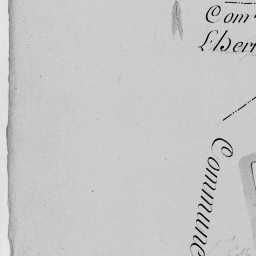 Com
L'her
Commune